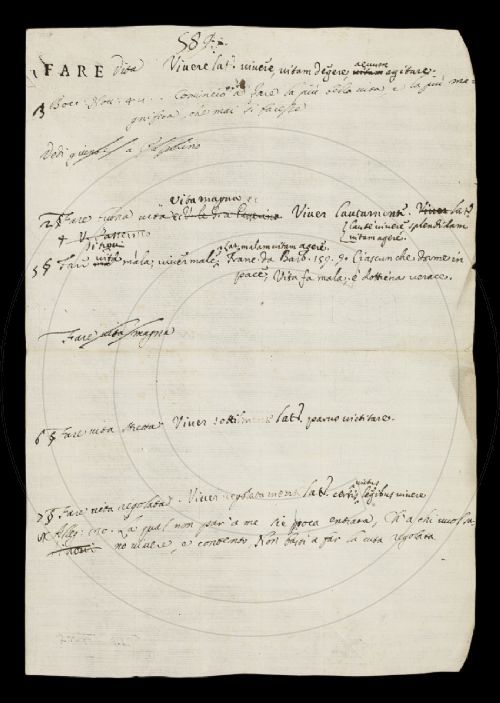 589.
FARE Vita Vivere lat. vivere, vitam degere, aevum vitam agitare.
Bocc. Nov. Cominciò a fare la più bella vita, e la più ma-
gnifica, che mai si facesse
Vita magna
2 § Fare buona vita Viver lautamente. Viver lat.
laute vivere splendidam
vitam agere.
3 § Fare vita mala, viver male, lat. malam vitam agere. Franc. da Barb. 159. 9. Ciascun che dorme in
pace, Vita fa mala, è dottrina verace.
Fare vita magna
6 § Fare vita stretta Viver sottilmente lat. parvo victitare.
7 § Fare vita regolata. Viver regolatamente lat. certis victus legibus vivere
Alleg. La qual non par a me sia poca entrata, A chi vuol sa-
no vivere, e contento Non basti a far la vita regolata